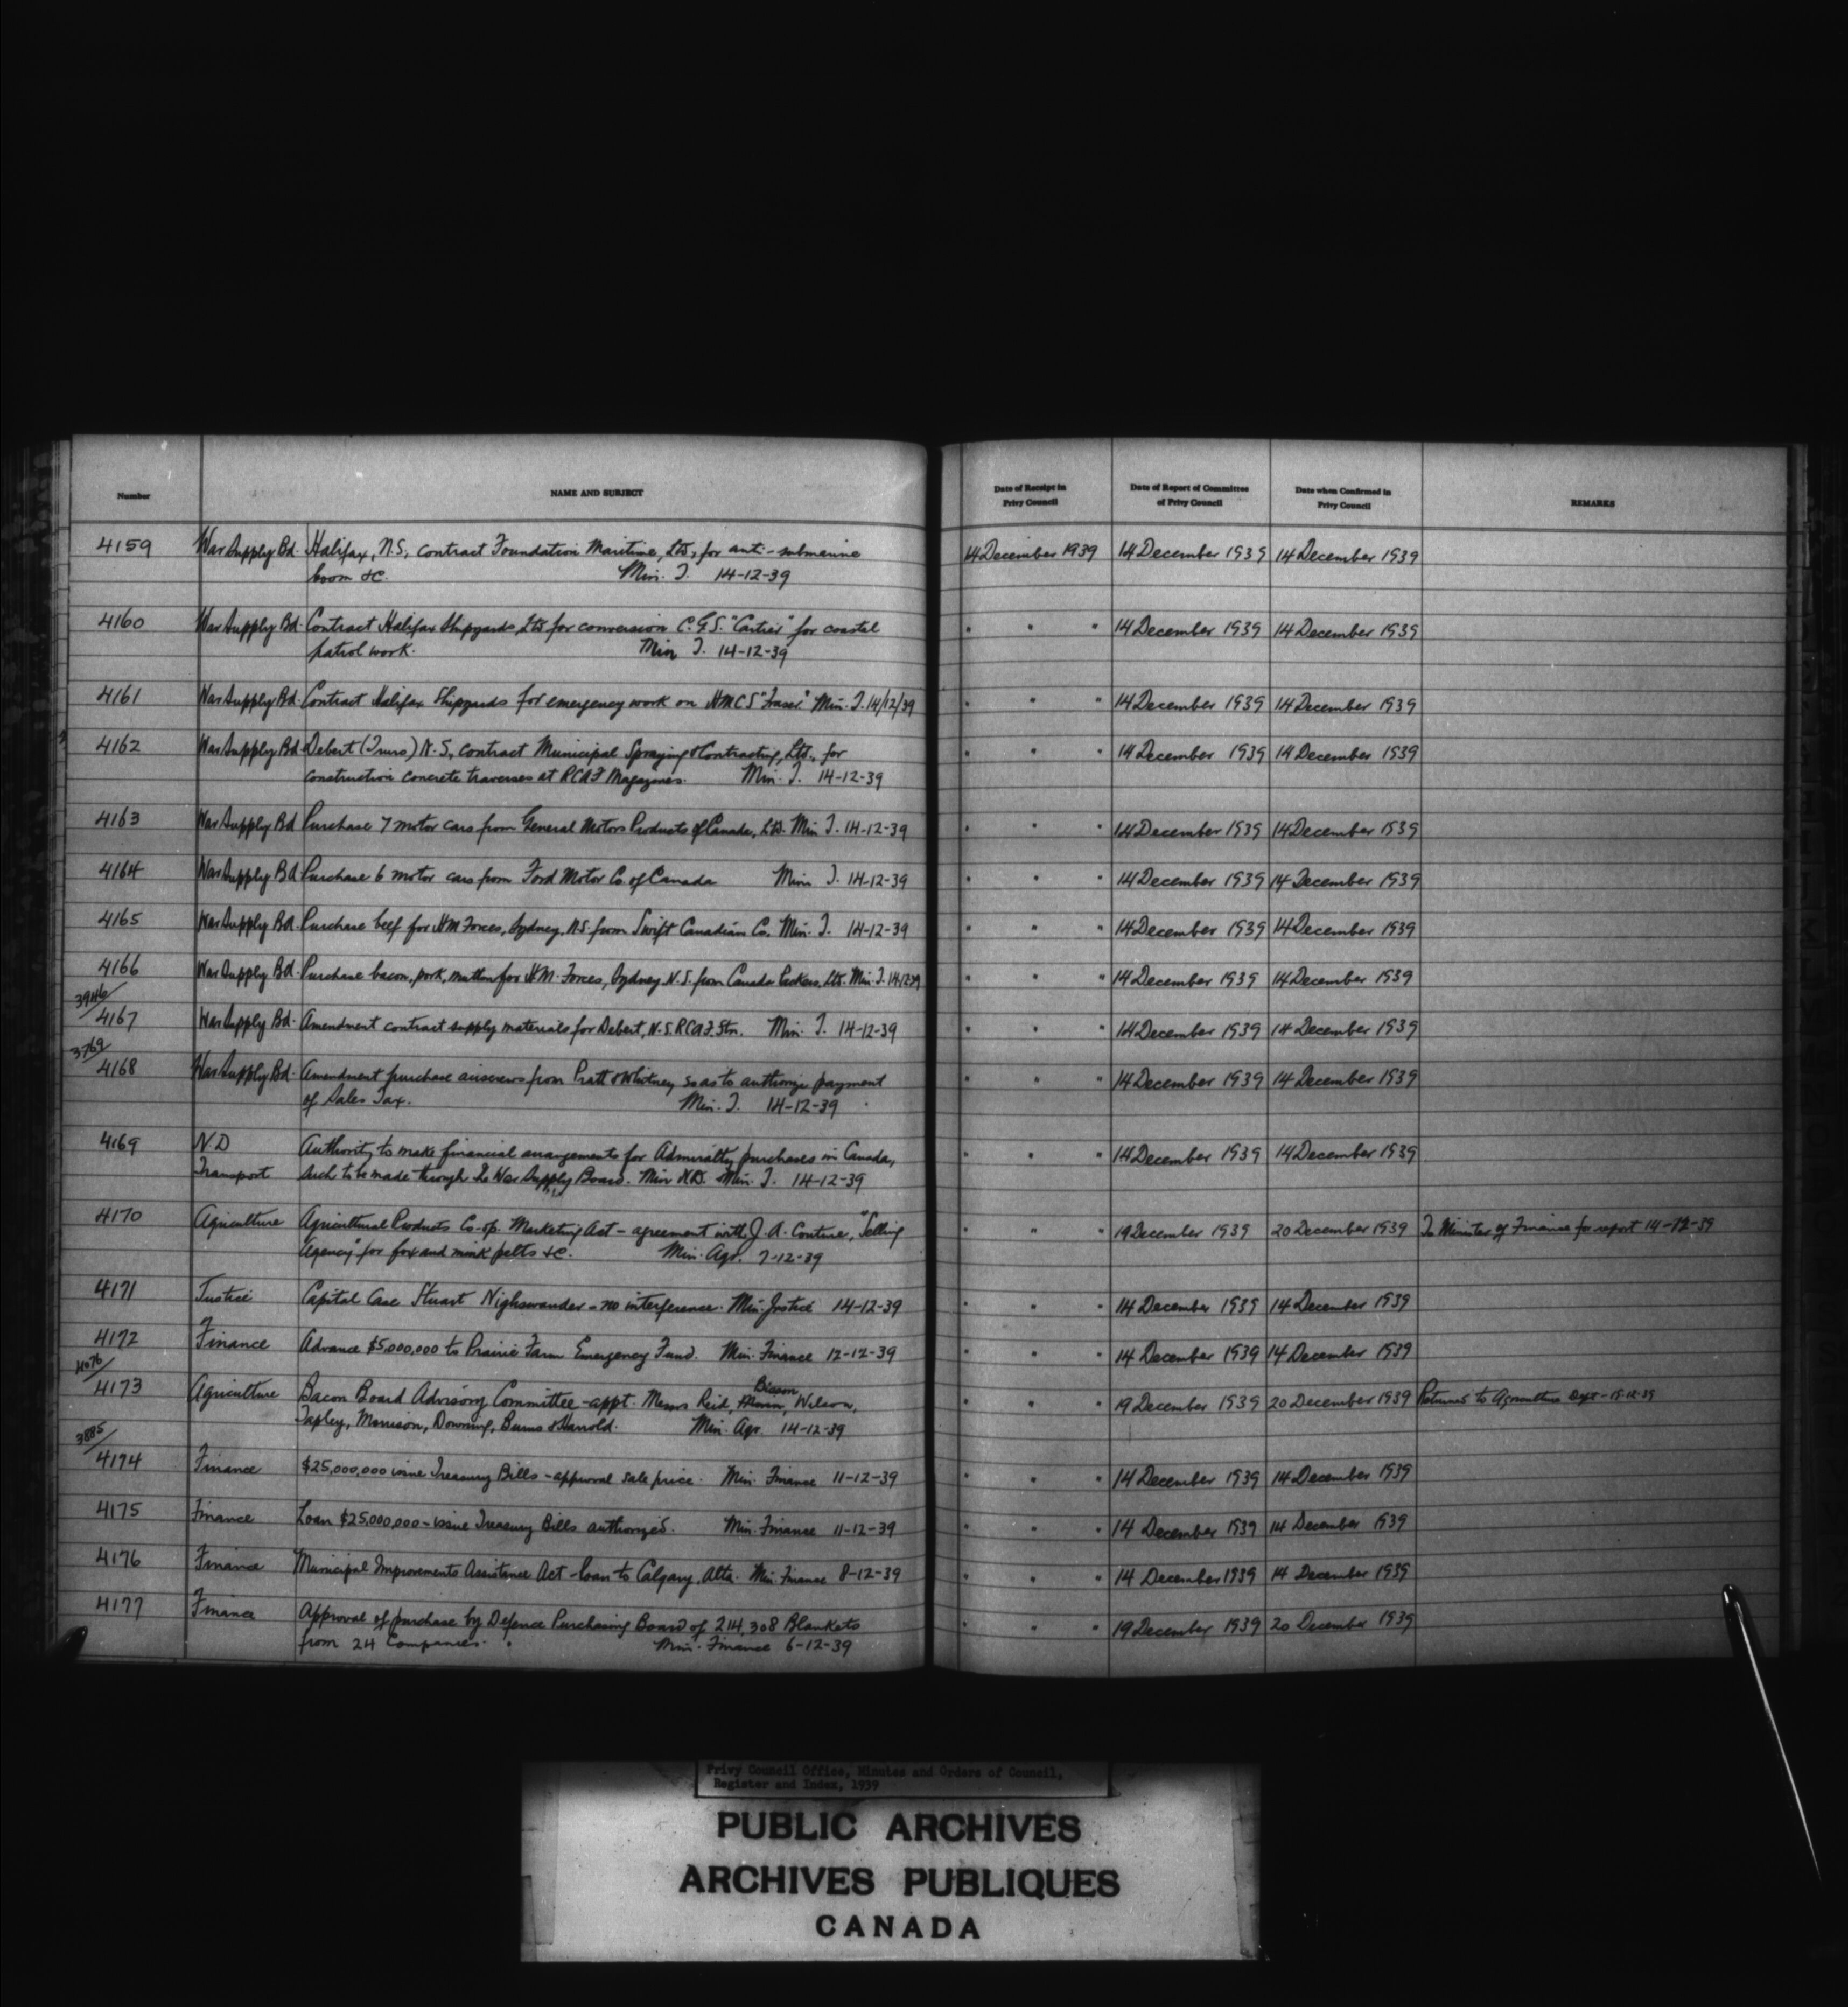 Number NAME AND SUBJECT Date of Receipt in Privy Council Date of Report of Committee of Privy Council Date when Confirmed in Privy Council REMARKS
4159 War Supply Bd. Halifax, N.S., contract Foundation Maritime, Ltd, for anti-submarine 14 December 1939 14 December 1939 14 December 1939
boom &c. Min. T. 14-12-39
4160 War Supply Bd. Contract Halifax Shipyards, Ltd for conversion C.G.S. "Cartier" for coastal " " " 14 December 1939 14 December 1939
patrol work. Min T. 14-12-39
4161 War Supply Bd. Contract Halifax Shipyards for emergency work on HMCS "Fraser" Min. T. 14/12/39 " " " 14 December 1939 14 December 1939
4162 War Supply Bd. Debert (Truro) N.S., contract Municipal Spraying & Contracting, Ltd., for " " " 14 December 1939 14 December 1939
construction concrete traverses at RCAF Magazines. Min. T. 14-12-39
4163 War Supply Bd Purchase 7 motor cars from General Motors Products of Canada, Ltd. Min T. 14-12-39 " " " 14 December 1939 14 December 1939
4164 War Supply Bd Purchase 6 motor cars from Ford Motor Co. of Canada Min T. 14-12-39 " " " 14 December 1939 14 December 1939
4165 War Supply Bd. Purchase beef for HM Forces, Sydney, N.S. from Swift Canadian Co. Min. T. 14-12-39 " " " 14 December 1939 14 December 1939
4166 War Supply Bd. Purchase bacon, pork, mutton for HM. Forces, Sydney N.S. from Canada Packers, Ltd. Min. T. 14-12-39 " " " 14 December 1939 14 December 1939
3946/
4167 War Supply Bd. Amendment contract supply materials for Debert, N.S. RCAF. Stn. Min. T. 14-12-39 " " " 14 December 1939 14 December 1939
3769/
4168 War Supply Bd. Amendment purchase airscrews from Pratt & Whitney so as to authorize payment " " " 14 December 1939 14 December 1939
of Sales Tax. Min. T. 14-12-39
4169 N.D Authority to make financial arrangements for Admiralty purchases in Canada, " " " 14 December 1939 14 December 1939
Transport such to be made through the War Supply Board. Min N.D. Min. T. 14-12-39
4170 Agriculture Agricultural Products Co-op. Marketing Act - agreement with J.A. Couture, "Selling " " " 19 December 1939 20 December 1939 To Minister of Finance for report 14-12-39
Agency" for fox and mink pelts &c. Min. Agr. 7-12-39
4171 Justice Capital Case Stuart Nighswander - no interference. Min. Justice 14-12-39 " " " 14 December 1939 14 December 1939
4172 Finance Advance $5,000,000 to Prairie Farm Emergency Fund. Min. Finance 12-12-39 " " " 14 December 1939 14 December 1939
4076/
Bisson
4173 Agriculture Bacon Board Advisory Committee - appt. Messrs Reid, Wilson, " " " 19 December 1939 20 December 1939 Returned to Agriculture Dept - 15-12-39
Tapley, Morrison, Downing, Burns & Harrold. Min. Agr. 14-12-39
3885/
4174 Finance $25,000,000 issue Treasury Bills - approval sale price. Min. Finance 11-12-39 " " " 14 December 1939 14 December 1939
4175 Finance Loan $25,000,000 - issue Treasury Bills authorized. Min. Finance 11-12-39 " " " 14 December 1939 14 December 1939
4176 Finance Municipal Improvements Assistance Act - loan to Calgary, Alta. Min. Finance 8-12-39 " " " 14 December 1939 14 December 1939
4177 Finance Approval of purchase by Defence Purchasing Board of 214,308 Blankets " " " 19 December 1939 20 December 1939
from 24 Companies. Min. Finance 6-12-39
Privy Council Office, Minutes and Orders of Council,
Register and Index, 1939
PUBLIC ARCHIVES
ARCHIVES PUBLIQUES
CANADA